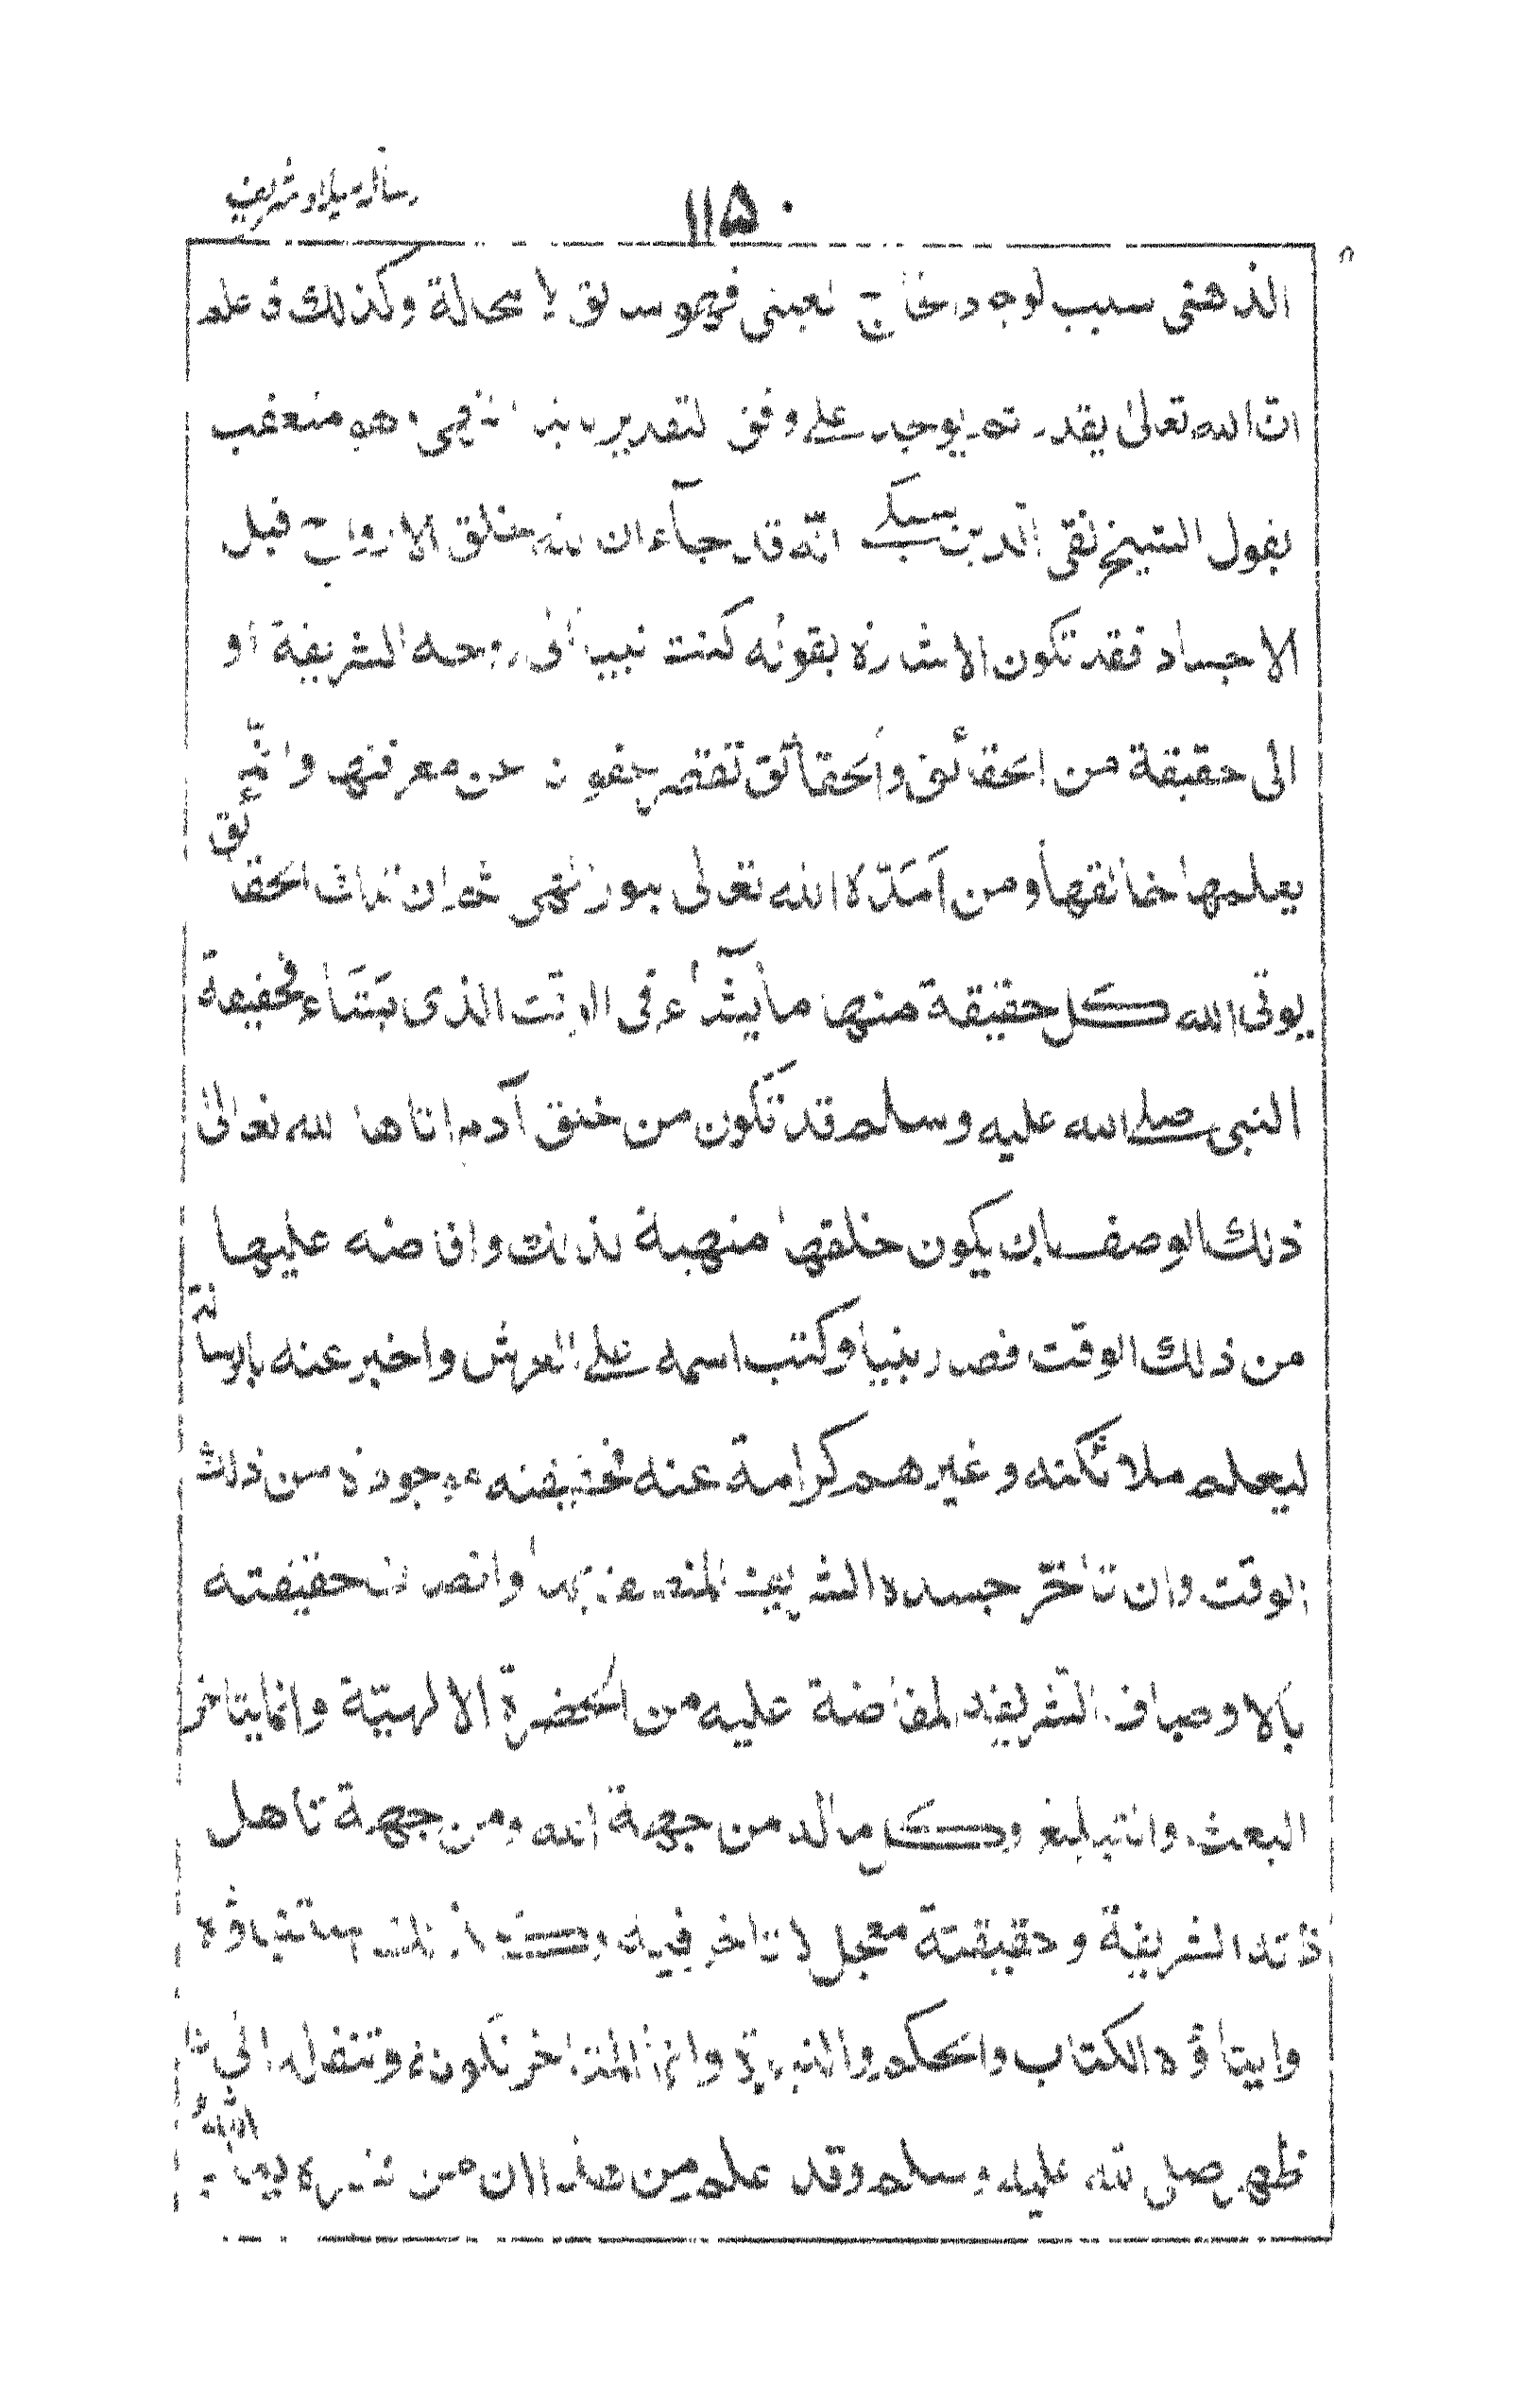 رسالہ میلاد شریف
۱۱۵
الذهنى سبب لوجود الخارج العينى فهو سابق لا محالة وكذلك فى علم
ان الله تعالى يقدر ثم يوجد على وفق التقدير وهو متعقب
بقول الشيخ تقى الدين سبكى انه قد جآء ان الله خلق الارواح قبل
الاجساد فقد تكون الاشارة بقوله كنت نبيا الى روحه الشريفة او
الى حقيقة من الحقائق والحقائق تقصر عقولنا عن معرفتها وانما
يعلمها خالقها ومن امدّه الله تعالى بنور الهى ثم ان تلك الحقائق
يوتى الله كل حقيقة منها ما يشاء فى الوقت الذى يشاء فحقيقة
النبى صلى الله عليه وسلم قد تكون من خلق آدم اتاها الله تعالى
ذلك الوصف بان يكون خلقها منهبة لذلك وافاضه عليها
من ذلك الوقت فصار نبيا وكتب اسمه على العرش واخبر عنه بالرسالة
ليعلم ملائكته وغيرهم كرامة عنه فحقيقته موجودة من ذلك
الوقت وان تاخّر جسده الشريف المتصف بها واتصاف حقيقته
بالاوصاف الشريفة المفاضة عليه من الحضرة الالهيّة وانما يتاخر
البعث والتبليغ وكل ماله من جهة الله ومن جهة تاهل
ذاته الشريفة وحقيقته معجل لا تاخر فيه وكذلك استنباؤه
وايتاؤه الكتاب والحكم والنبوة وانما المتاخر تكونه وتنقله الى ان
ظهر صلى الله عليه وسلم وقد علم من هذا ان من فسره